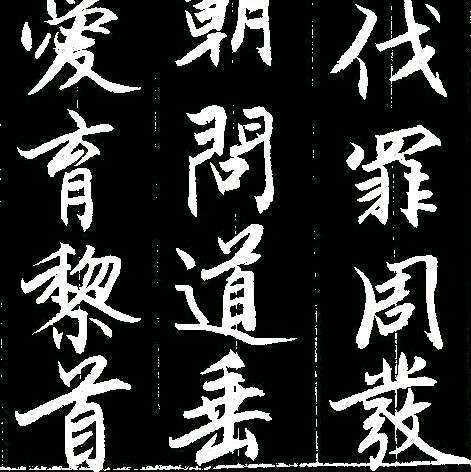 伐罪周發
朝問道垂
愛育黎首